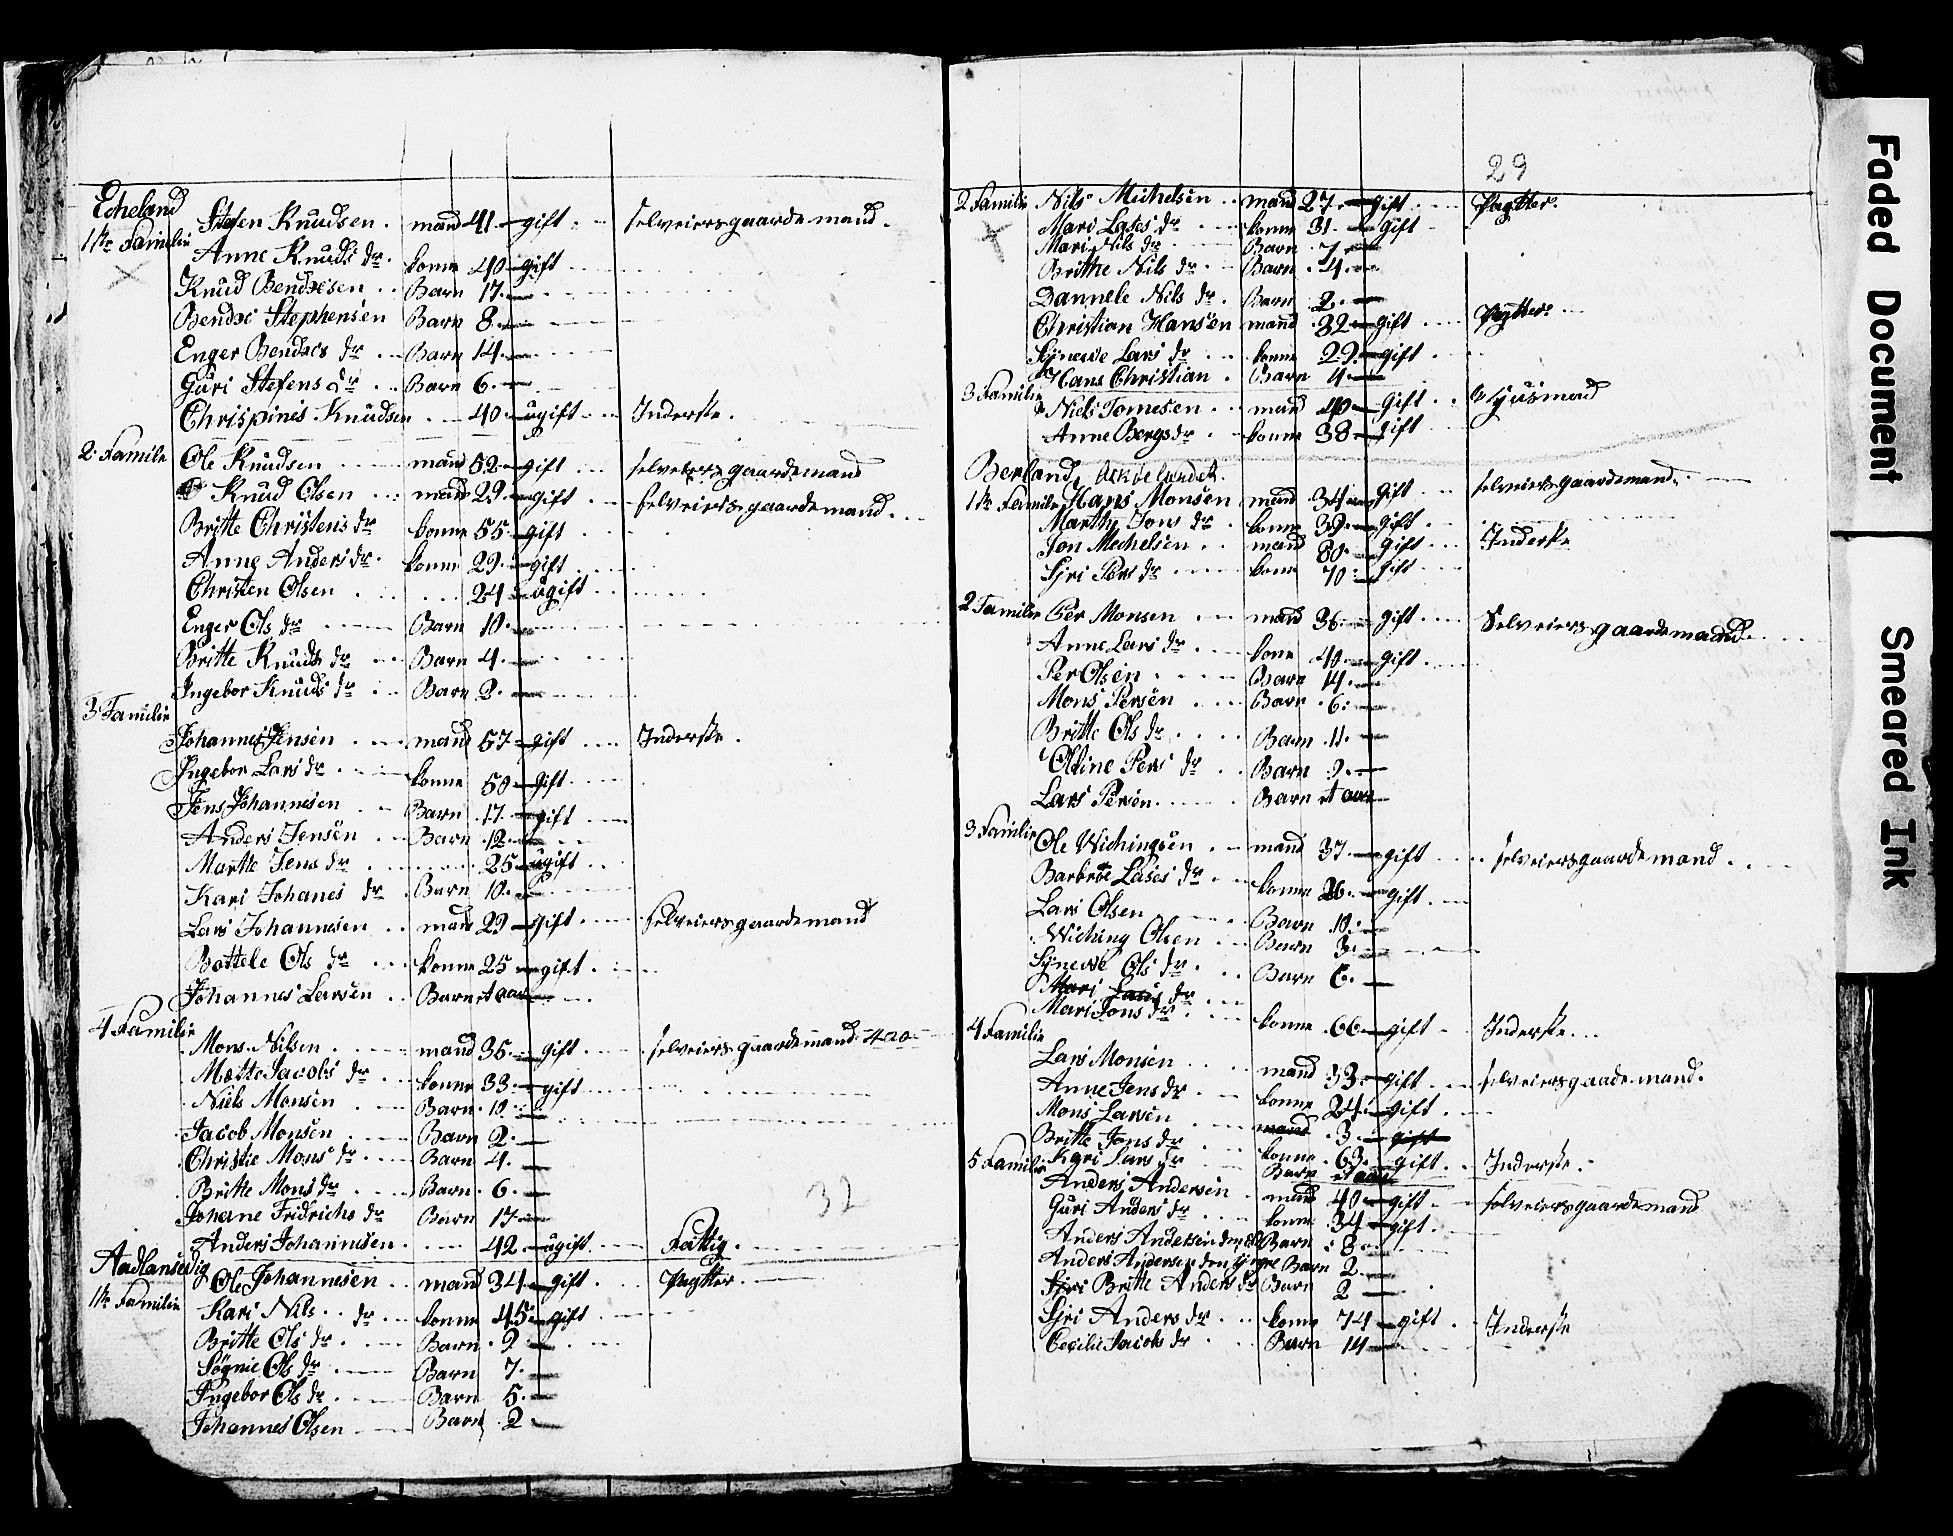 Echeland
Stefen Knudsen . mand 41. gift . selveiersgaardemand.
1ste Familie
Anne Knuds dr. konne 40 gift
Knud Bendxesen . Barn 17.
Bendxe Stephensen Barn 8.
Enger Bendxes dr . Barn 14.
Guri Stefens dr . Barn 6.
Chrispinis Knudsen . 40. ugift . Inderste.
2. Famile Ole Knudsen mand 52. gift . selveiersgaardemand
Knud Olsen . mand 29. gift . selveiersgaardemand.
Britte Christens dr konne 55. gift
Anne Anders dr. konne 29. gift
Christen Olsen . 24 ugift
Enger Ols dr Barn 10.
Britte Knuds dr . Barn 4.
Ingebor Knuds dr . Barn 2.
3 Familie
Johannes Jensen . mand 57 gift . Inderste.
Ingebor Lars dr . konne 50 gift.
Jens Johannesen . Barn 17. gift
Anders Jensen . Barn 12.
Marthe Jens dr 25 ugift
Kari Johanes dr . Barn 10.
Lars Johannesen . mand 29 gift . selveiersgaardemand
Bottele Ols dr . konne 25 gift .
Johannes Larsen . Barn et aar
4 Familie
Mons Nilsen . mand 35. gift . selveiersgaardemand
Mætte Jacobs dr . konne 33. gift
Niels Monsen . Barn 10
Jacob Monsen . Barn 2.
Christie Mons dr . Barn 4.
Britte Mons dr . Barn 6.
Joherne Fridrichs dr Barn 17.
32
Anders Johannesen . 42. ugift . Fattig.
Aadlansevig
Ole Johannesen . mand 34. gift . Pagtter.
1ste Familie
Kari Nils dr . konne 45. gift
Britte Ols dr . Barn 2
Sögnie Ols dr . Barn 7.
Ingebor Ols dr . Barn 5.
Johannes Olsen Barn 2.
29
2 Familie Nils Michelsen . mand 27. gift . Pagtter.
Mari Lases dr . konne 31. gift
Mari Nils dr Barn 7.
Brithe Nils dr . Barn 4.
Dannele Nils dr . Barn 2.
Christian Hansen mand 32 gift . Pagtter.
Synewe Lars dr . konne 29. gift .
Hans Christian . Barn 4
3 Familie
Niels Tomesen . mand 40 gift . Huusmand
Anne Bergs dr . konne 38 gift
Berland,
1ste Familie Hans Monsen mand 34 gift . selveiersgaardemand.
Marthy Jons dr . konne 39. gift .
Jon Mechelsen . mand 80. gift . Inderste
Sjri Pers dr . konne 70. gift
2 Familie Per Monsen . mand 36. gift . Selveiersgaardemand.
Anne Lars dr . kone 40. gift .
Per Olsen . Barn 14.
Mons Persen . Barn 6.
Britte Ols dr . Barn 11.
Oline Pers dr . Barn 9.
Lars Persen . Barn et aar
3 Familie
Ole Wichingsen . mand 37. gift . selveiersgaardemand.
Barbroe Lases dr . konne 26. gift .
Lars Olsen Barn 10.
Wiching Olsen . Barn 3.
Synewe Ols dr . Barn 6.
Mari Lasis dr
Mari Jons dr . konne 66 gift . Inderste.
4 Familie
Lars Monsen . mand 33. gift . selveiersgaardemand.
Anne Jens dr . konne 24. gift .
Mons Larsen . mand 3. gift
Britte Jons dr . konne 63. gift . Inderste.
5 Familie Kari Lars dr Barn et aar
Anders Andersen . mand 40 gift . selveiersgaardemand
Guri Anders dr konne 34 gift .
Anders Andersen den Barn 8.
Anders Andersen den yngre Barn 2.
Sjri Britte Anders dr Barn 2
Sjri Anders dr . konne 74 gift . Inderste
Cecilie Jacobs dr Barn 14
Faded Document
Smeared Ink